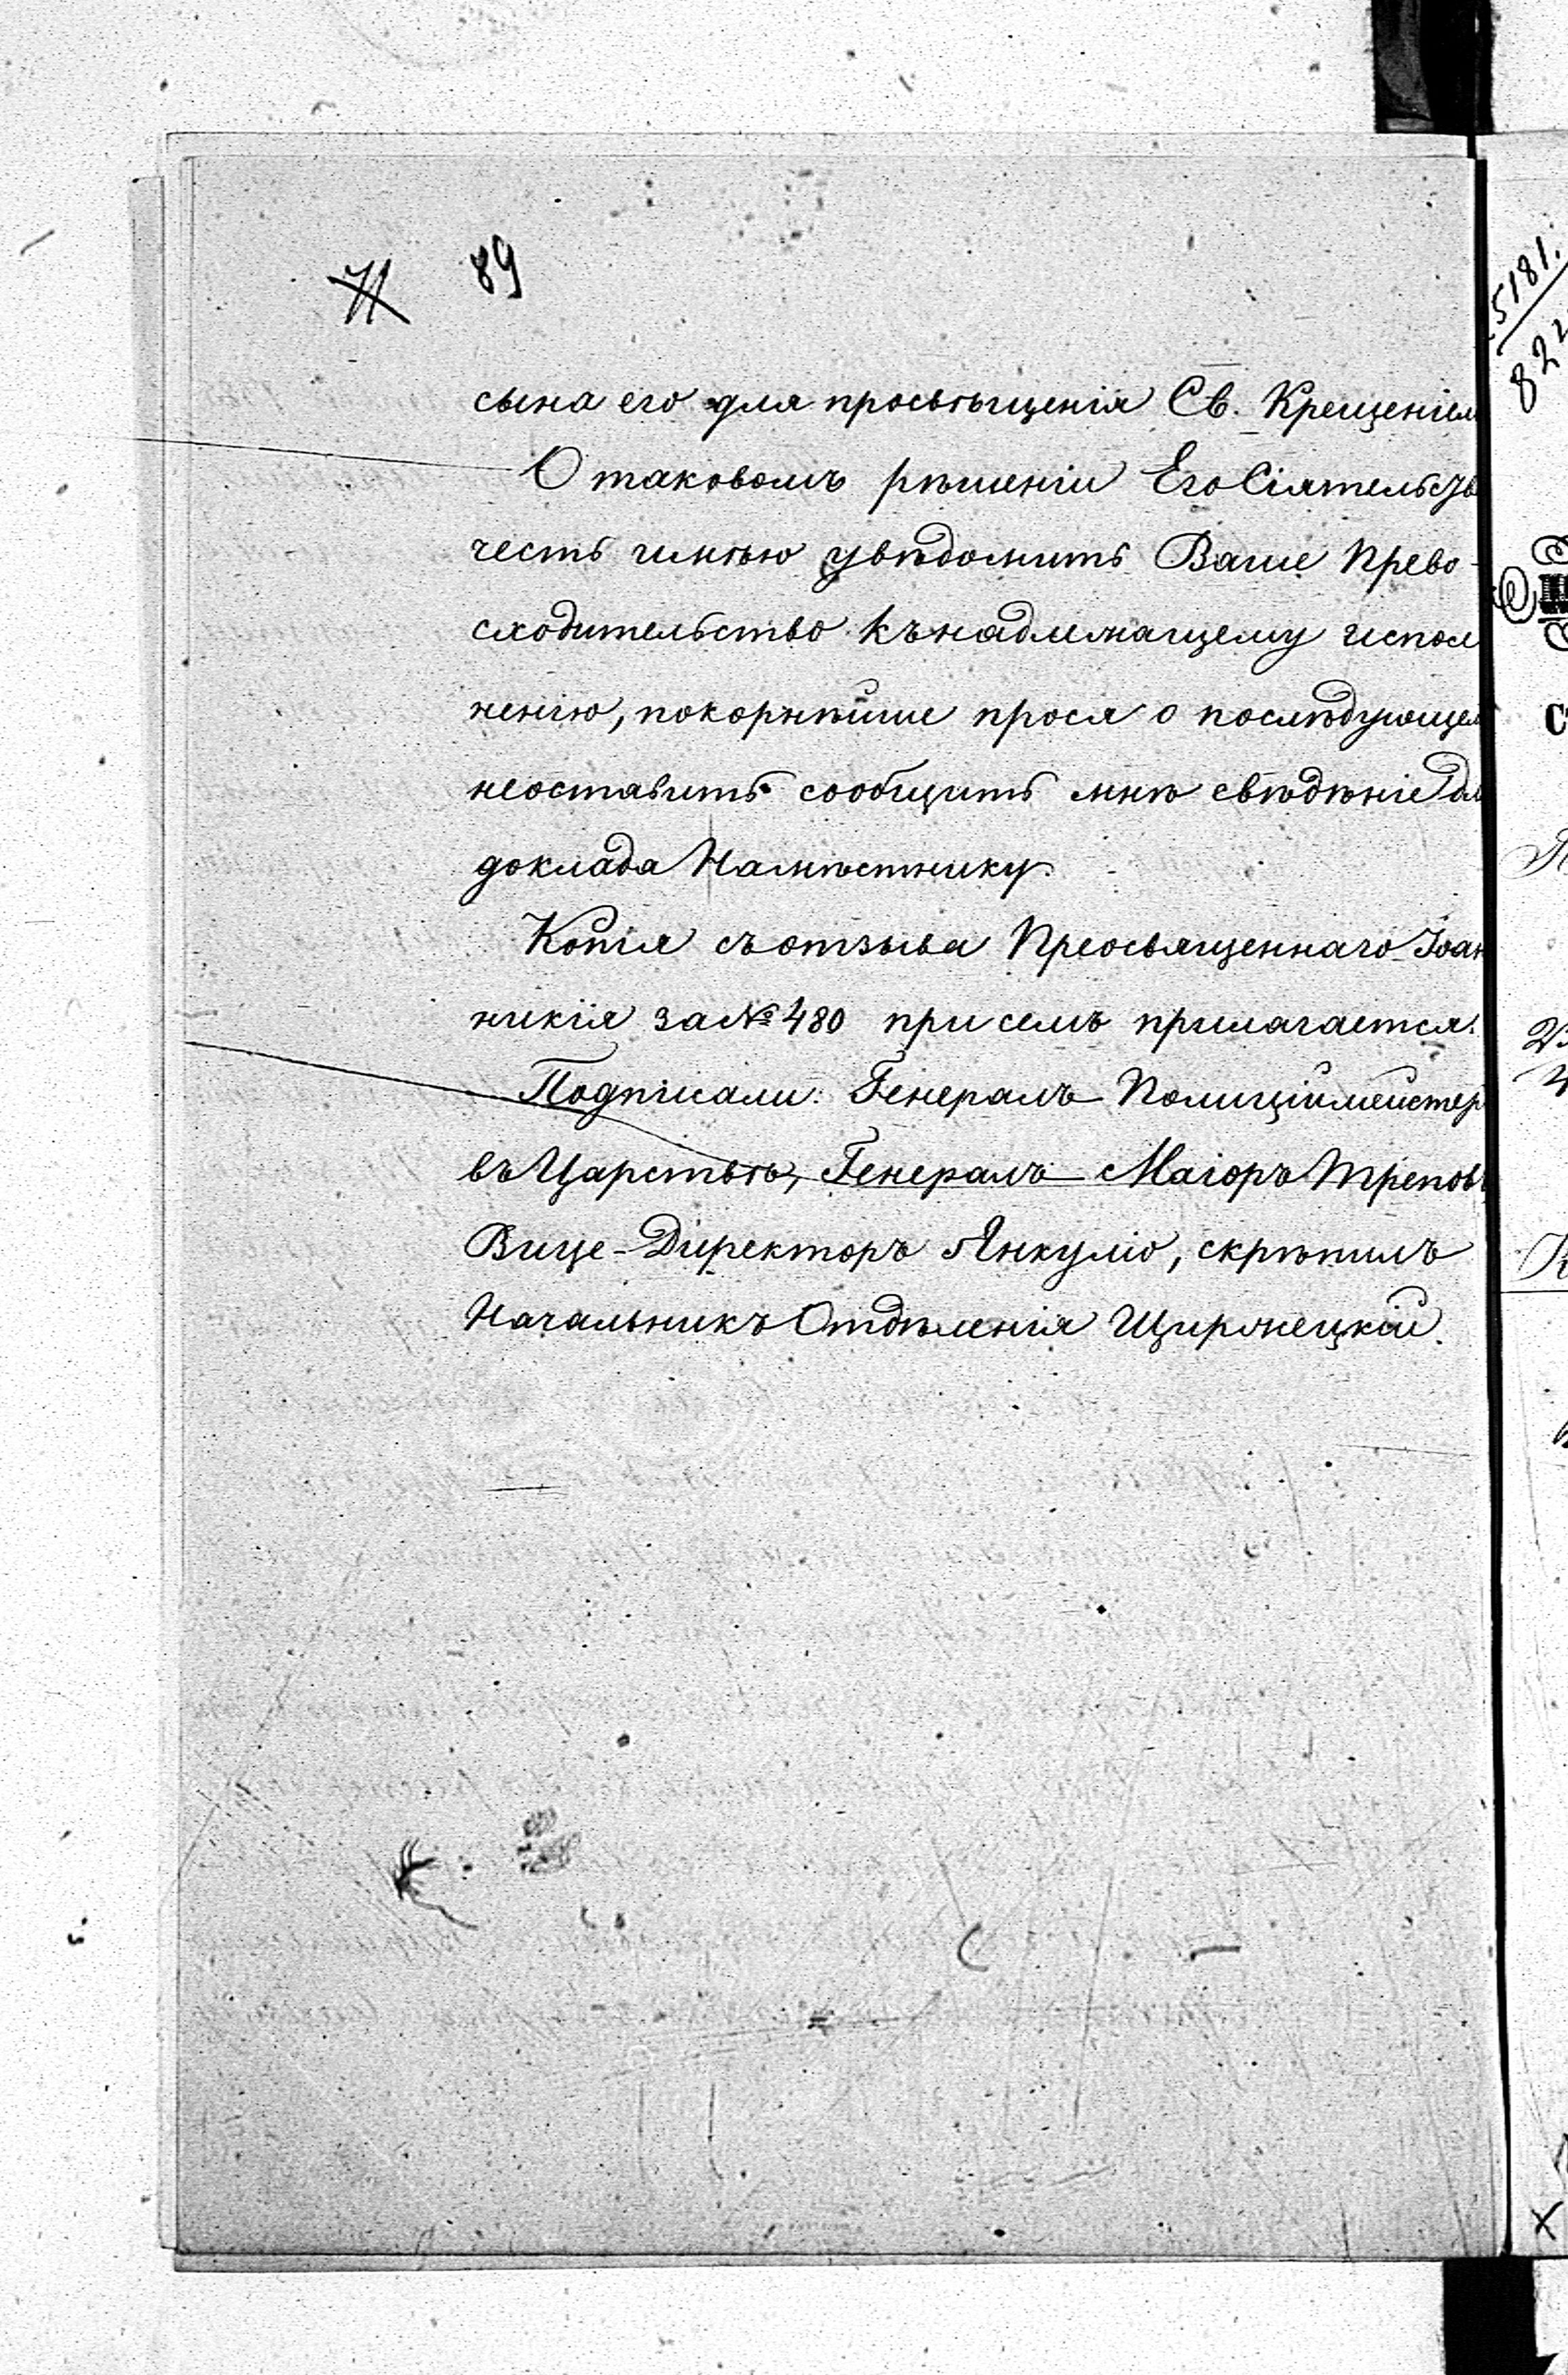 71 89
сына его для просвѣщенія Св. Крещеніем
О таковомъ рѣшеніи Его Сіятельств
честь имѣю увѣдомить Ваше Прево-
сходительство къ надлежащему испол
ненію, покорнѣйше прося о послѣдующем
неоставить сообщить мнѣ свѣдѣніе дл
доклада Намѣстнику.
Копія съ отзыва Преосвященнаго Іоан
никія за № 480 при семъ прилагается.
Подписали: Генералъ Полиціймейстер
въ Царствѣ, Генералъ Маіоръ Треповъ
Вице-Директоръ Янкуліо, скрѣпилъ
Начальникъ Отдѣленія Щиржецкій.
5181.
822